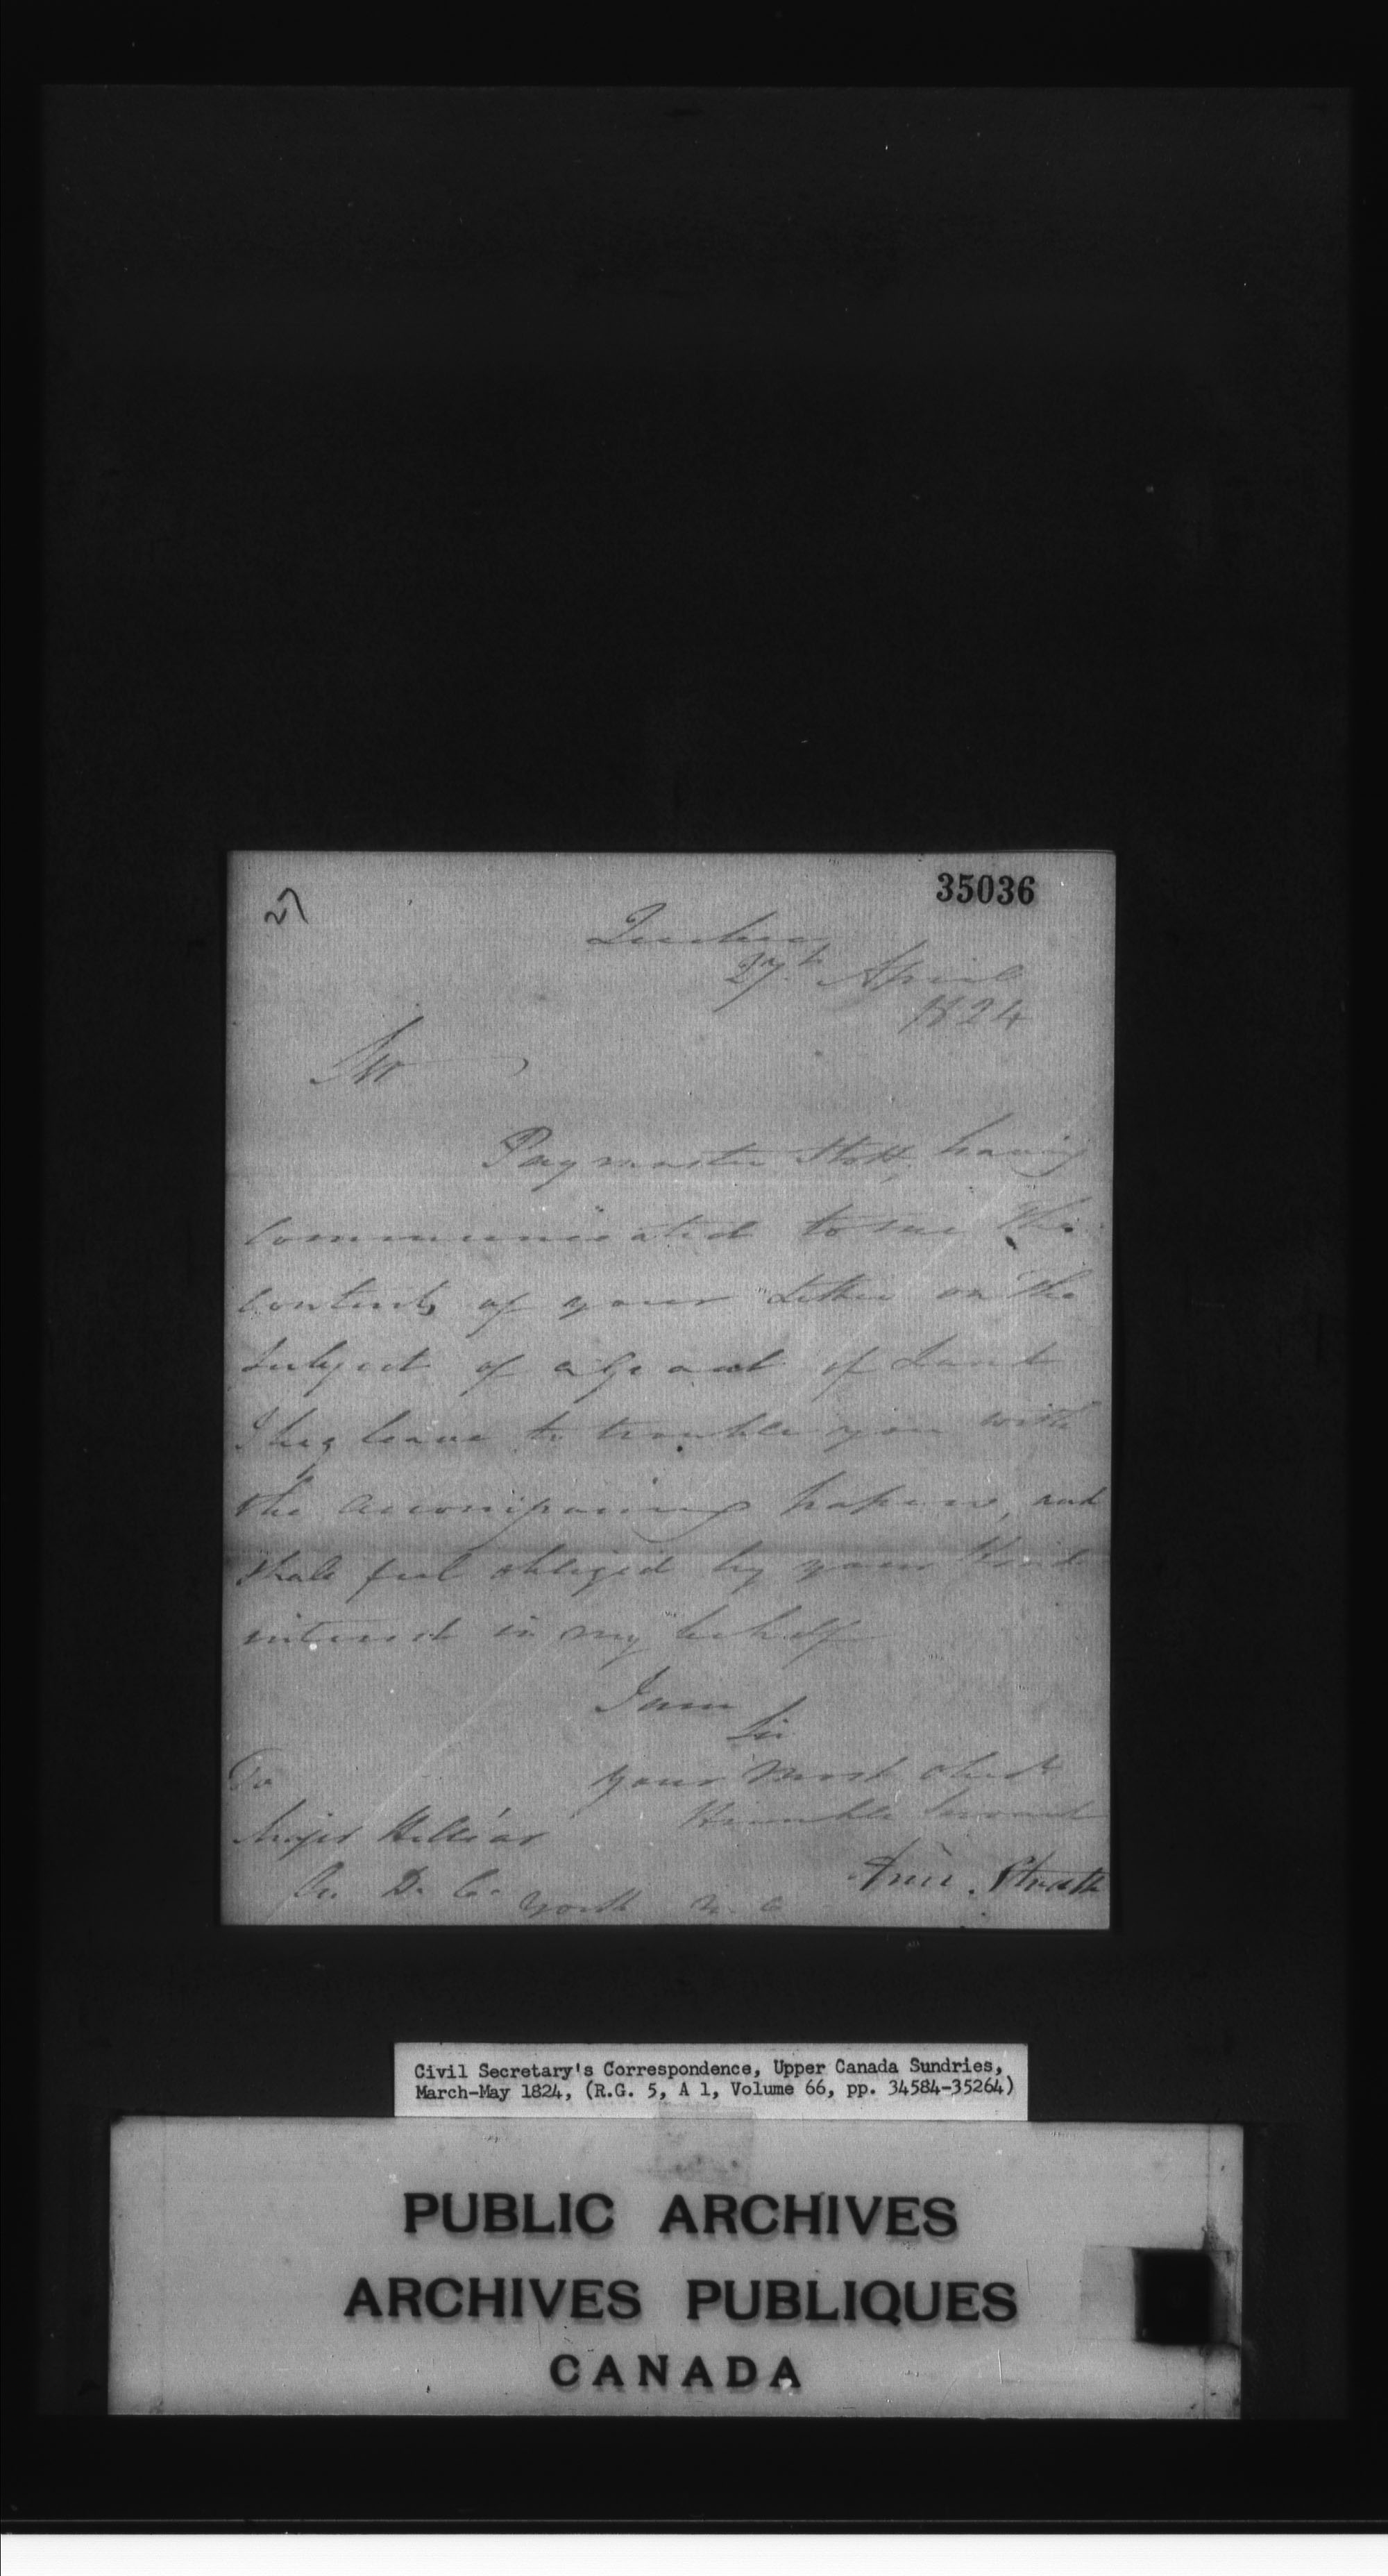 35036
27
Quebec
27th April
1824
Sir
Paymaster Stott, having
communicated to me the
contents of your Letter on the
subject of a Grant of Land
I beg leave to trouble you with
the accompaning papers, and
shall feel obliged by your Kind
interest in my behalf
I am
Sir
your most obedt
Humble Servant
Ann
To
Major Hilliar
York U. C.
Civil Secretary's Correspondence, Upper Canada Sundries,
March-May 1824, (R.G. 5, A 1, Volume 66, pp. 34584-35264)
PUBLIC ARCHIVES
ARCHIVES PUBLIQUES
CANADA